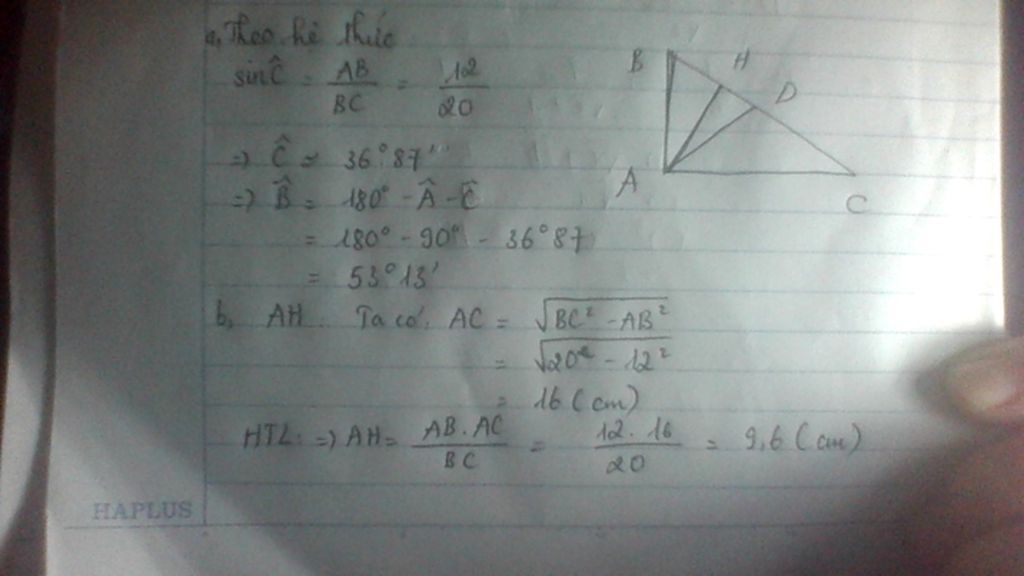 a, Theo hệ thức
sin Ĉ = AB/BC = 12/20
=> Ĉ = 36°87'
=> B̂ = 180° - Â - Ĉ
= 180° - 90° - 36°87
= 53°13'
b, AH. Ta có: AC = √(BC² - AB²)
= √(20² - 12²)
= 16 (cm)
HTL: => AH = AB.AC/BC = 12.16/20 = 9,6 (cm)
B H D
A C
HAPLUS